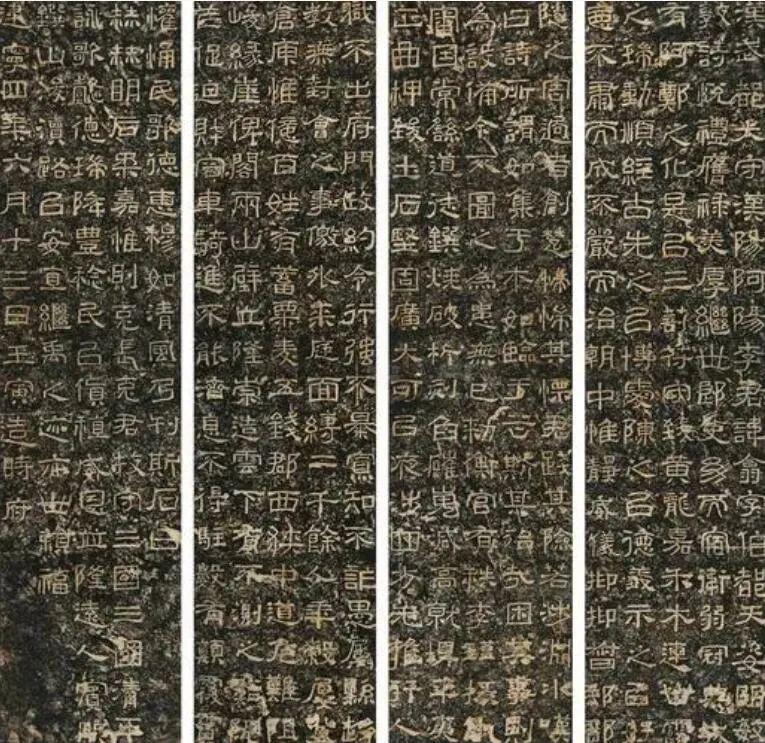 漢武都太守漢陽阿陽李君諱翕字伯都天姿明敏
敦詩悅禮膺祿美厚繼世郎吏幼而宿衛弱冠典城
有阿鄭之化是以三剖符守致黃龍嘉禾木連甘露
之瑞動順經古先之以博愛陳之以德義示之以好
惡不肅而成不嚴而治朝中惟靜威儀抑抑督郵部
職不出府門政約令行强不暴寡知不詐愚屬縣趨
教無對會之事徼外來庭面縛二千餘人年穀屢登
倉庾惟億百姓有蓄粟麥五錢郡西狹中道危難阻
峻緣崖俾閣兩山壁立隆崇造雲下有不測之谿阨
芒促迫財容車騎進不能濟息不得駐數有顛覆霣
隧之害過者創楚惴惴其慄君踐其險若涉淵冰嘆
曰詩所謂如集于木如臨于谷斯其殆哉困其事則
為設備今不圖之為患無已勑衡官有秩李瑾掾仇
審因常繇道徒鐉燒破析刻臽確嵬減高就埤平夷
正曲柙致土石堅固廣大可以夜涉四方无雍行人
懽悀民歌德惠穆如清風乃刊斯石曰
赫赫明后柔嘉惟則克長克君牧守三國三國清平
詠歌懿德瑞降豐稔民以貨稙威恩並隆遠人賓服
鐉山浚瀆路以安直繼禹之迹亦世賴福
建寧四年六月十三日壬寅造時府